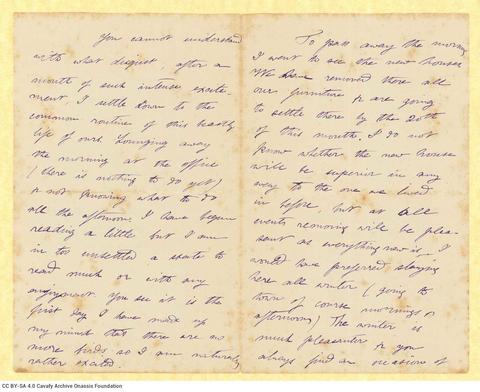 You cannot understand
with what disgust, after a
month of such intense excite-
ment, I settle down to the
common routine of this beastly
life of ours. Lounging away
the morning at the office
(there is nothing to do yet)
& not knowing what to do
all the afternoon. I have begun
reading a little but I am
in too unsettled a state to
read much or with any
enjoyment. You see it is the
first day I have made up
my mind that there are no
more birds so I am naturally
rather excited.
To pass away the morning
I went to see the new house.
We have removed there all
our furniture & are going
to settle there by the 20th
of this month. I do not
know whether the new house
will be superior in any
way to the one we lived
in before, but at all
events removing will be plea-
sant as everything new is. I
would have preferred staying
here all winter (going to
town of course mornings or
afternoons) The winter is
much pleasanter & you
always find an occasion of
CC BY-SA 4.0 Cavafy Archive Onassis Foundation